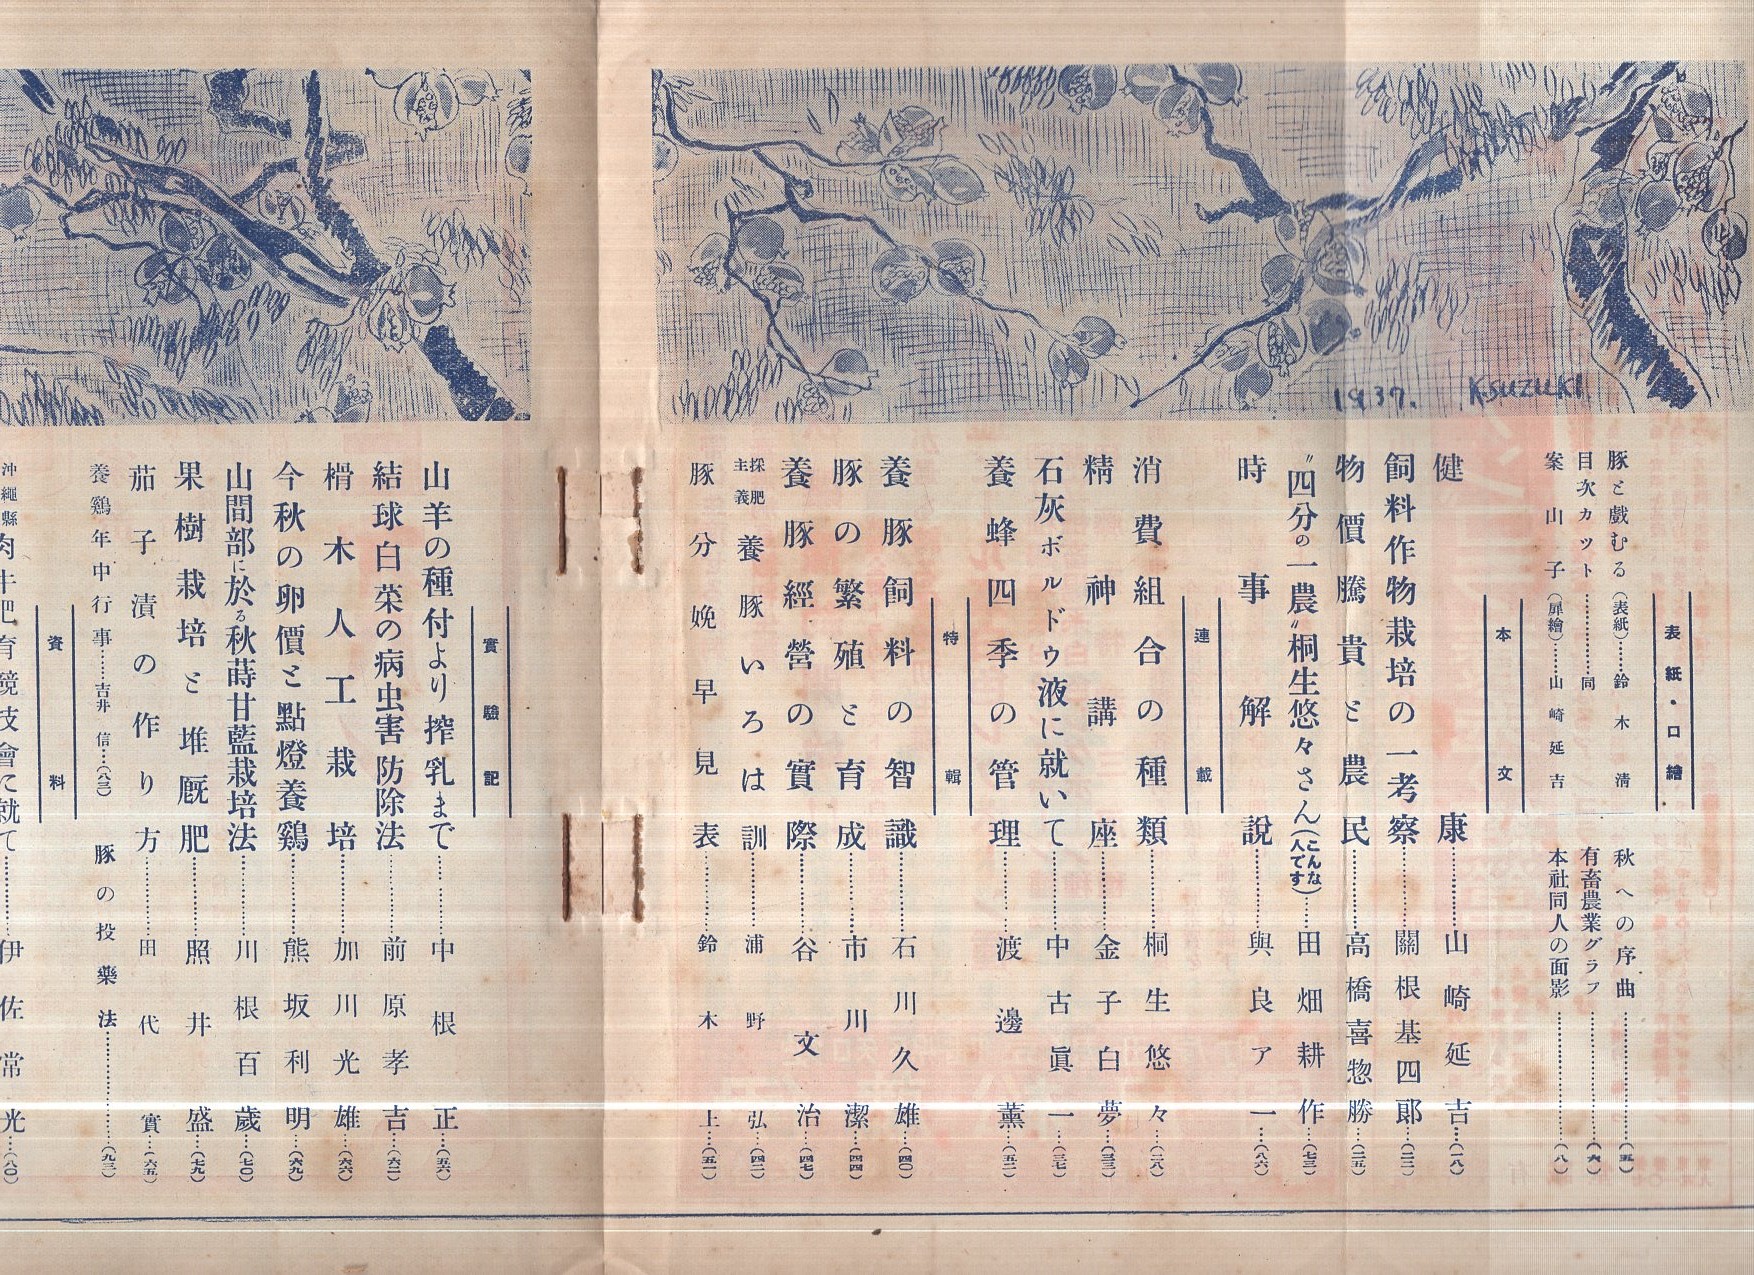 1937. K.SUZUKI
表紙・口繪
豚と戲むる(表紙)……鈴木淸
目次カット…………同
案山子(扉繪)……山崎延吉
秋への序曲…………(五)
有畜農業グラフ…………(六)
本社同人の面影…………(八)
本文
健康…………山崎延吉…(一八)
飼料作物栽培の一考察…………關根基四郞…(二二)
物價騰貴と農民…………高橋喜惣勝…(二五)
〝四分の一農〟桐生悠々さん(こんな人です)……田畑耕作…(七三)
時事解說…………與良ア一…(八六)
連載
消費組合の種類…………桐生悠々…(二八)
精神講座…………金子白夢…(三三)
石灰ボルドウ液に就いて…………中古眞一…(三七)
養蜂四季の管理…………渡邊薰…(五二)
特輯
養豚飼料の智識…………石川久雄…(四〇)
豚の繁殖と育成…………市川潔…(四四)
養豚經營の實際…………谷文治…(四七)
採肥主義養豚いろは訓…………浦野弘…(四二)
豚分娩早見表…………鈴木上…(五一)
實驗記
山羊の種付より搾乳まで…………中根正…(五六)
結球白菜の病虫害防除法…………前原孝吉…(六二)
榾木人工栽培…………加川光雄…(六六)
今秋の卵價と點燈養鷄…………熊坂利明…(六九)
山間部に於る秋蒔甘藍栽培法…………川根百歲…(七〇)
果樹栽培と堆厩肥…………照井盛…(七九)
茄子漬の作り方…………田代實…(六五)
養鷄年中行事……吉井信…(八三)
豚の投藥法…………(九三)
資料
沖繩縣肉牛肥育競技會に就て…………伊佐常光…(八〇)